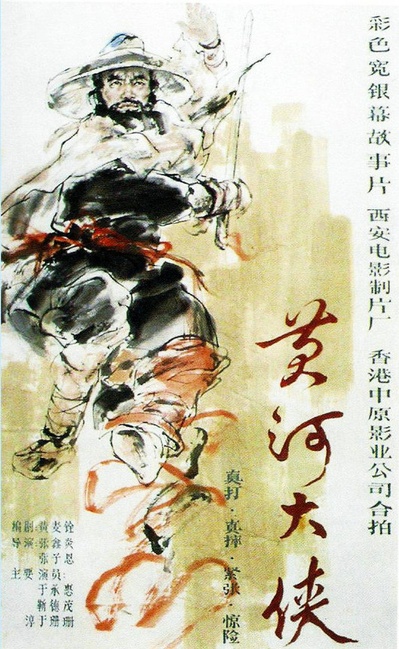 彩色宽银幕故事片 西安电影制片厂 香港中原影业公司合拍
黄河大侠
真打·真摔·紧张·惊险
编剧 黄麦铨
导演 张鑫炎
张子恩
主要演员:
于承惠
靳德茂